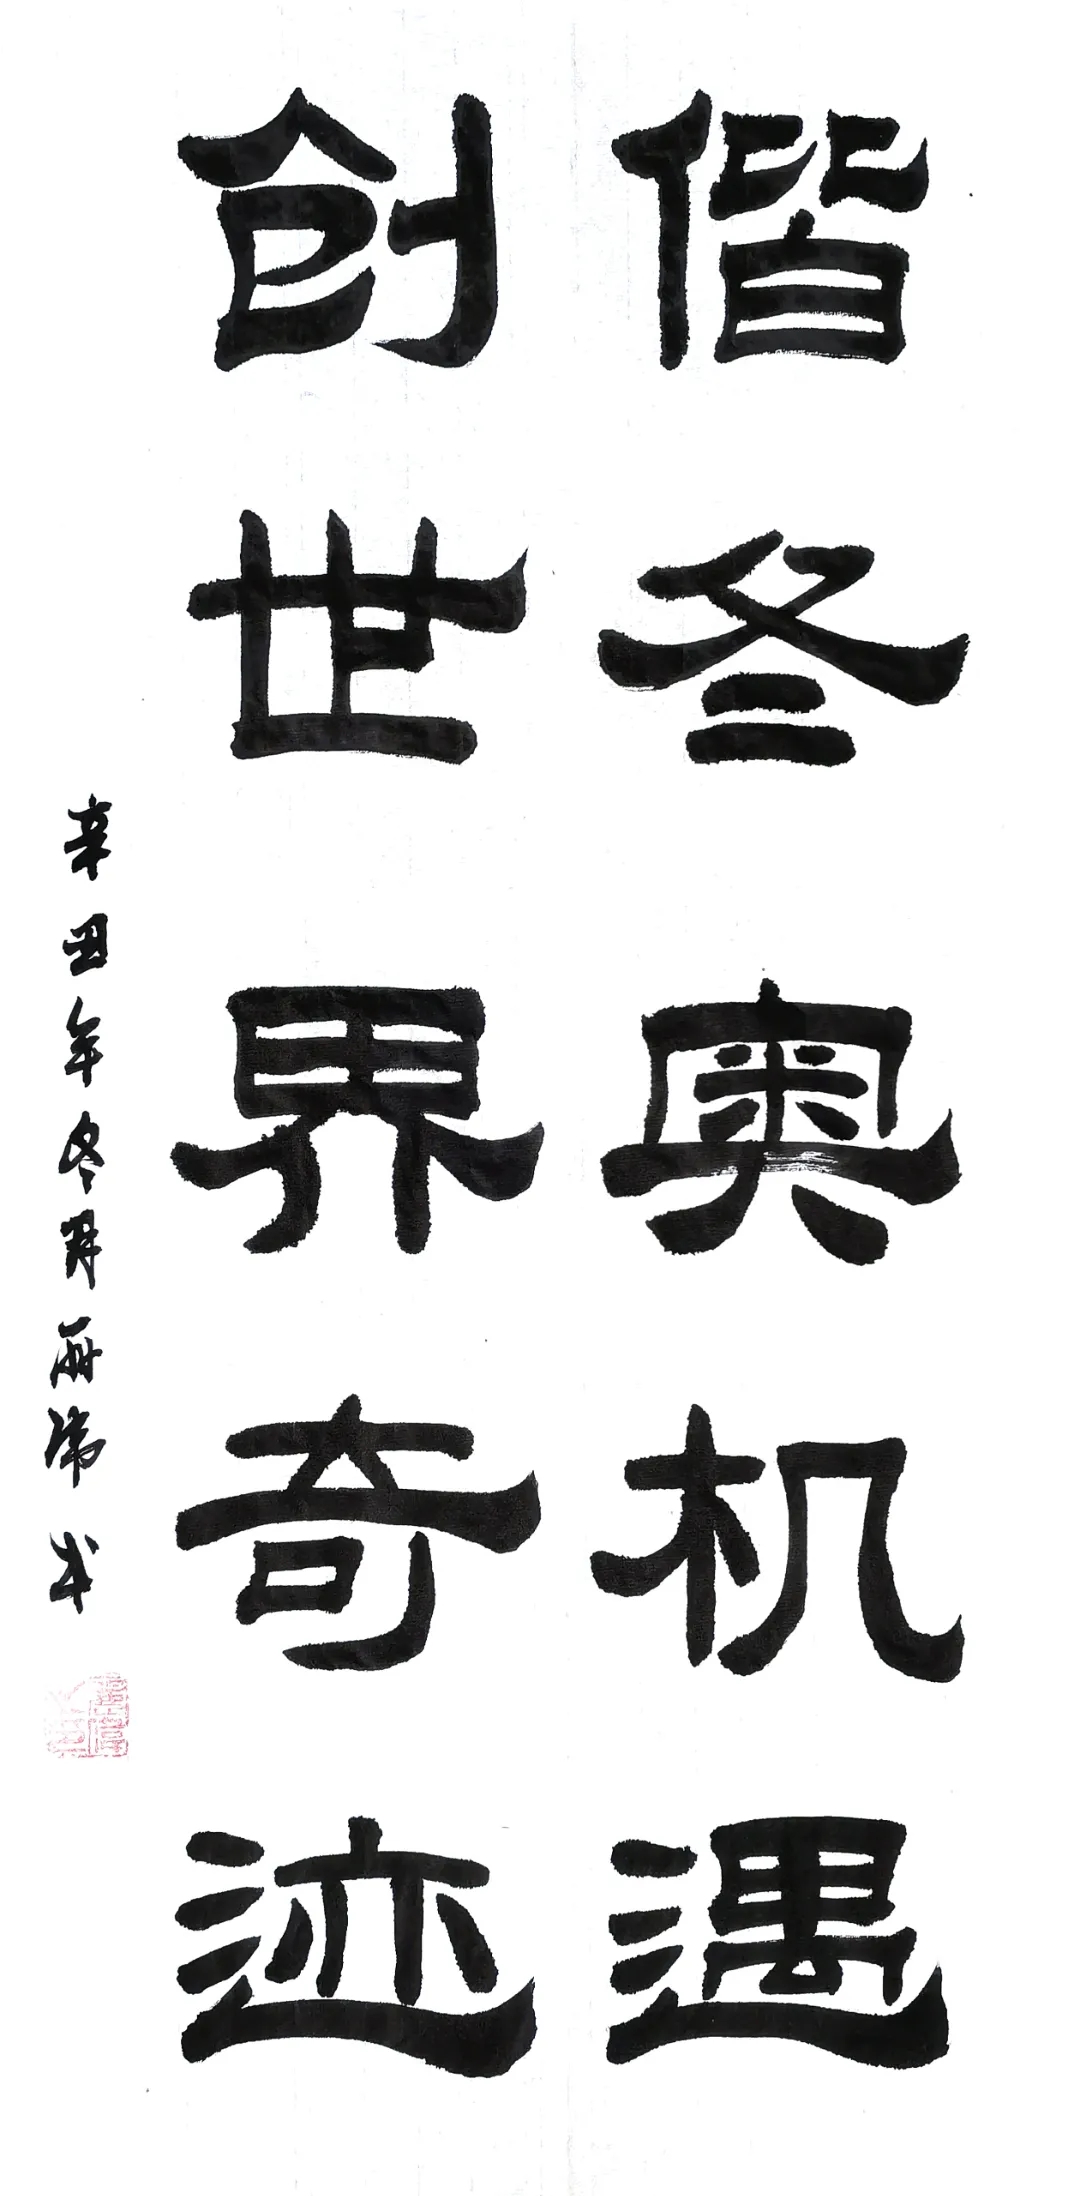 偕冬奥机遇
创世界奇迹
辛丑年冬月丽瑞书